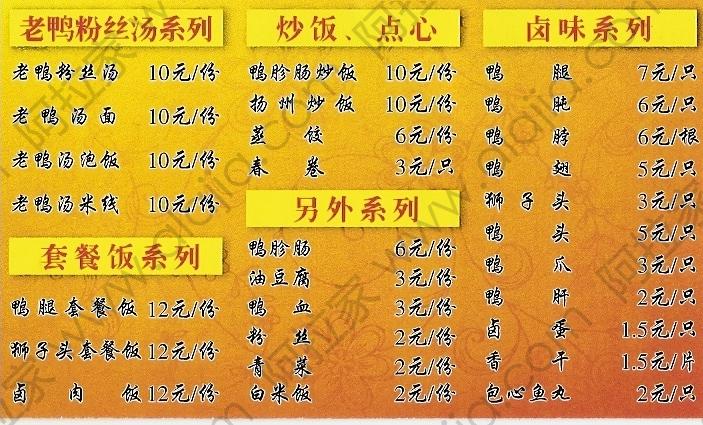 老鸭粉丝汤系列
老鸭粉丝汤 10元/份
老鸭汤面 10元/份
老鸭汤泡饭 10元/份
老鸭汤米线 10元/份
套餐饭系列
鸭腿套餐饭 12元/份
狮子头套餐饭 12元/份
卤肉饭 12元/份
炒饭、点心
鸭胗肠炒饭 10元/份
扬州炒饭 10元/份
蒸饺 6元/份
春卷 3元/只
另外系列
鸭胗肠 6元/份
油豆腐 3元/份
鸭血 3元/份
粉丝 2元/份
青菜 2元/份
白米饭 2元/份
卤味系列
鸭腿 7元/只
鸭肫 6元/只
鸭脖 6元/根
鸭翅 5元/只
狮子头 3元/只
鸭头 5元/只
鸭爪 3元/只
鸭肝 2元/只
卤蛋 1.5元/只
香干 1.5元/片
包心鱼丸 2元/只
阿拉家 www.alajia.com